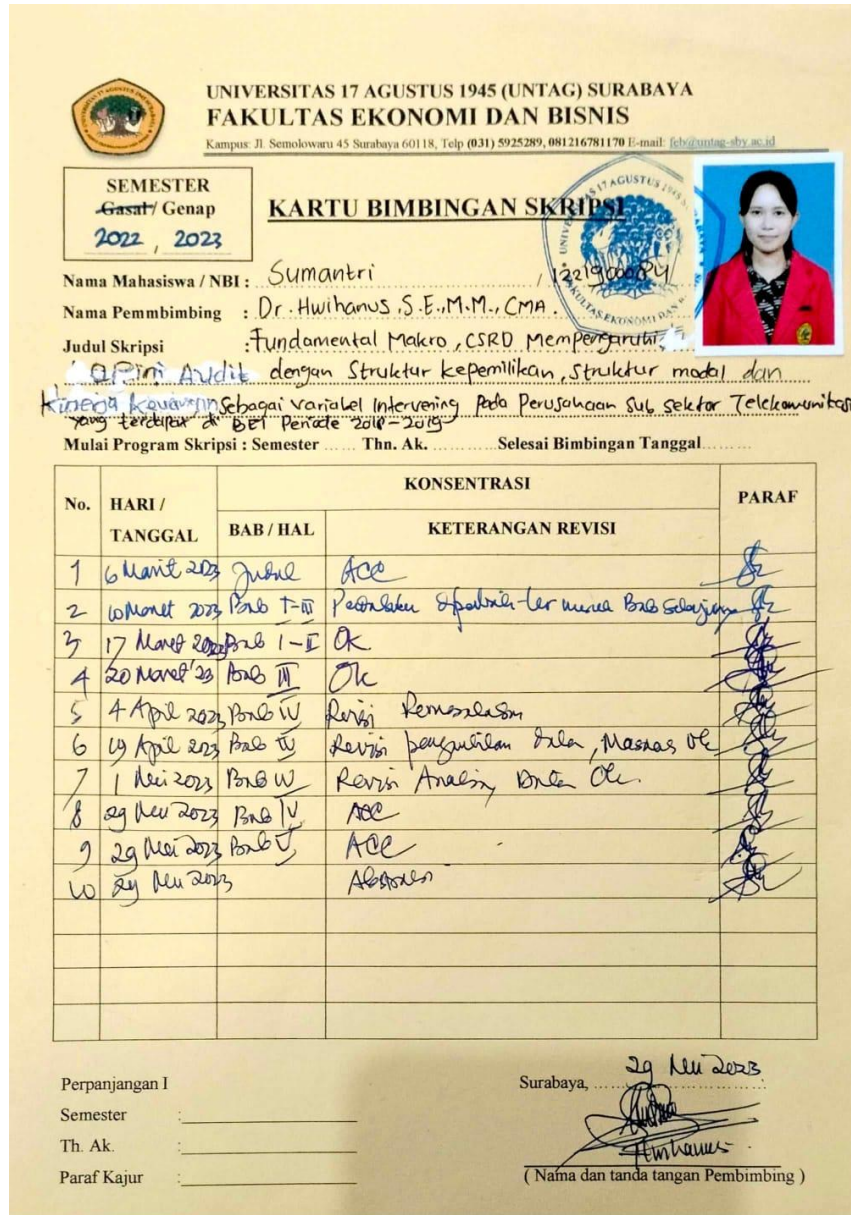 UNIVERSITAS 17 AGUSTUS 1945 (UNTAG) SURABAYA
FAKULTAS EKONOMI DAN BISNIS
Kampus: Jl. Semolowaru 45 Surabaya 60118, Telp (031) 5925289, 081216781170 E-mail: feb@untag-sby.ac.id
SEMESTER
Gasal / Genap
2022, 2023
KARTU BIMBINGAN SKRIPSI
Nama Mahasiswa / NBI : Sumantri / 1221900084
Nama Pemmbimbing : Dr. Hwihanus, S.E., M.M., CMA.
Judul Skripsi : Fundamental Makro, CSRD Mempengaruhi
Opini Audit dengan Struktur kepemilikan, Struktur modal dan
Kinerja Keuangan Sebagai variabel Intervening Pada Perusahaan Sub sektor Telekomunikasi
yang terdapat di BEI Periode 2018-2019
Mulai Program Skripsi : Semester ...... Thn. Ak. ............ Selesai Bimbingan Tanggal.........
No. HARI / TANGGAL KONSENTRASI PARAF
BAB / HAL KETERANGAN REVISI
1 6 Maret 2023 Judul ACC
2 10 Maret 2023 Bab I-III
3 17 Maret 2023 Bab I-II Ok
4 20 Maret '23 Bab III Ok
5 4 April 2023 Bab IV Revisi
6 19 April 2023 Bab IV Revisi Ok
7 1 Mei 2023 Bab IV Revisi Analisis Data Ok.
8 29 Mei 2023 Bab IV ACC
9 29 Mei 2023 Bab V ACC
10 29 Mei 2023
Perpanjangan I
Semester :
Th. Ak. :
Paraf Kajur :
Surabaya, 29 Mei 2023
Hwihanus
( Nama dan tanda tangan Pembimbing )